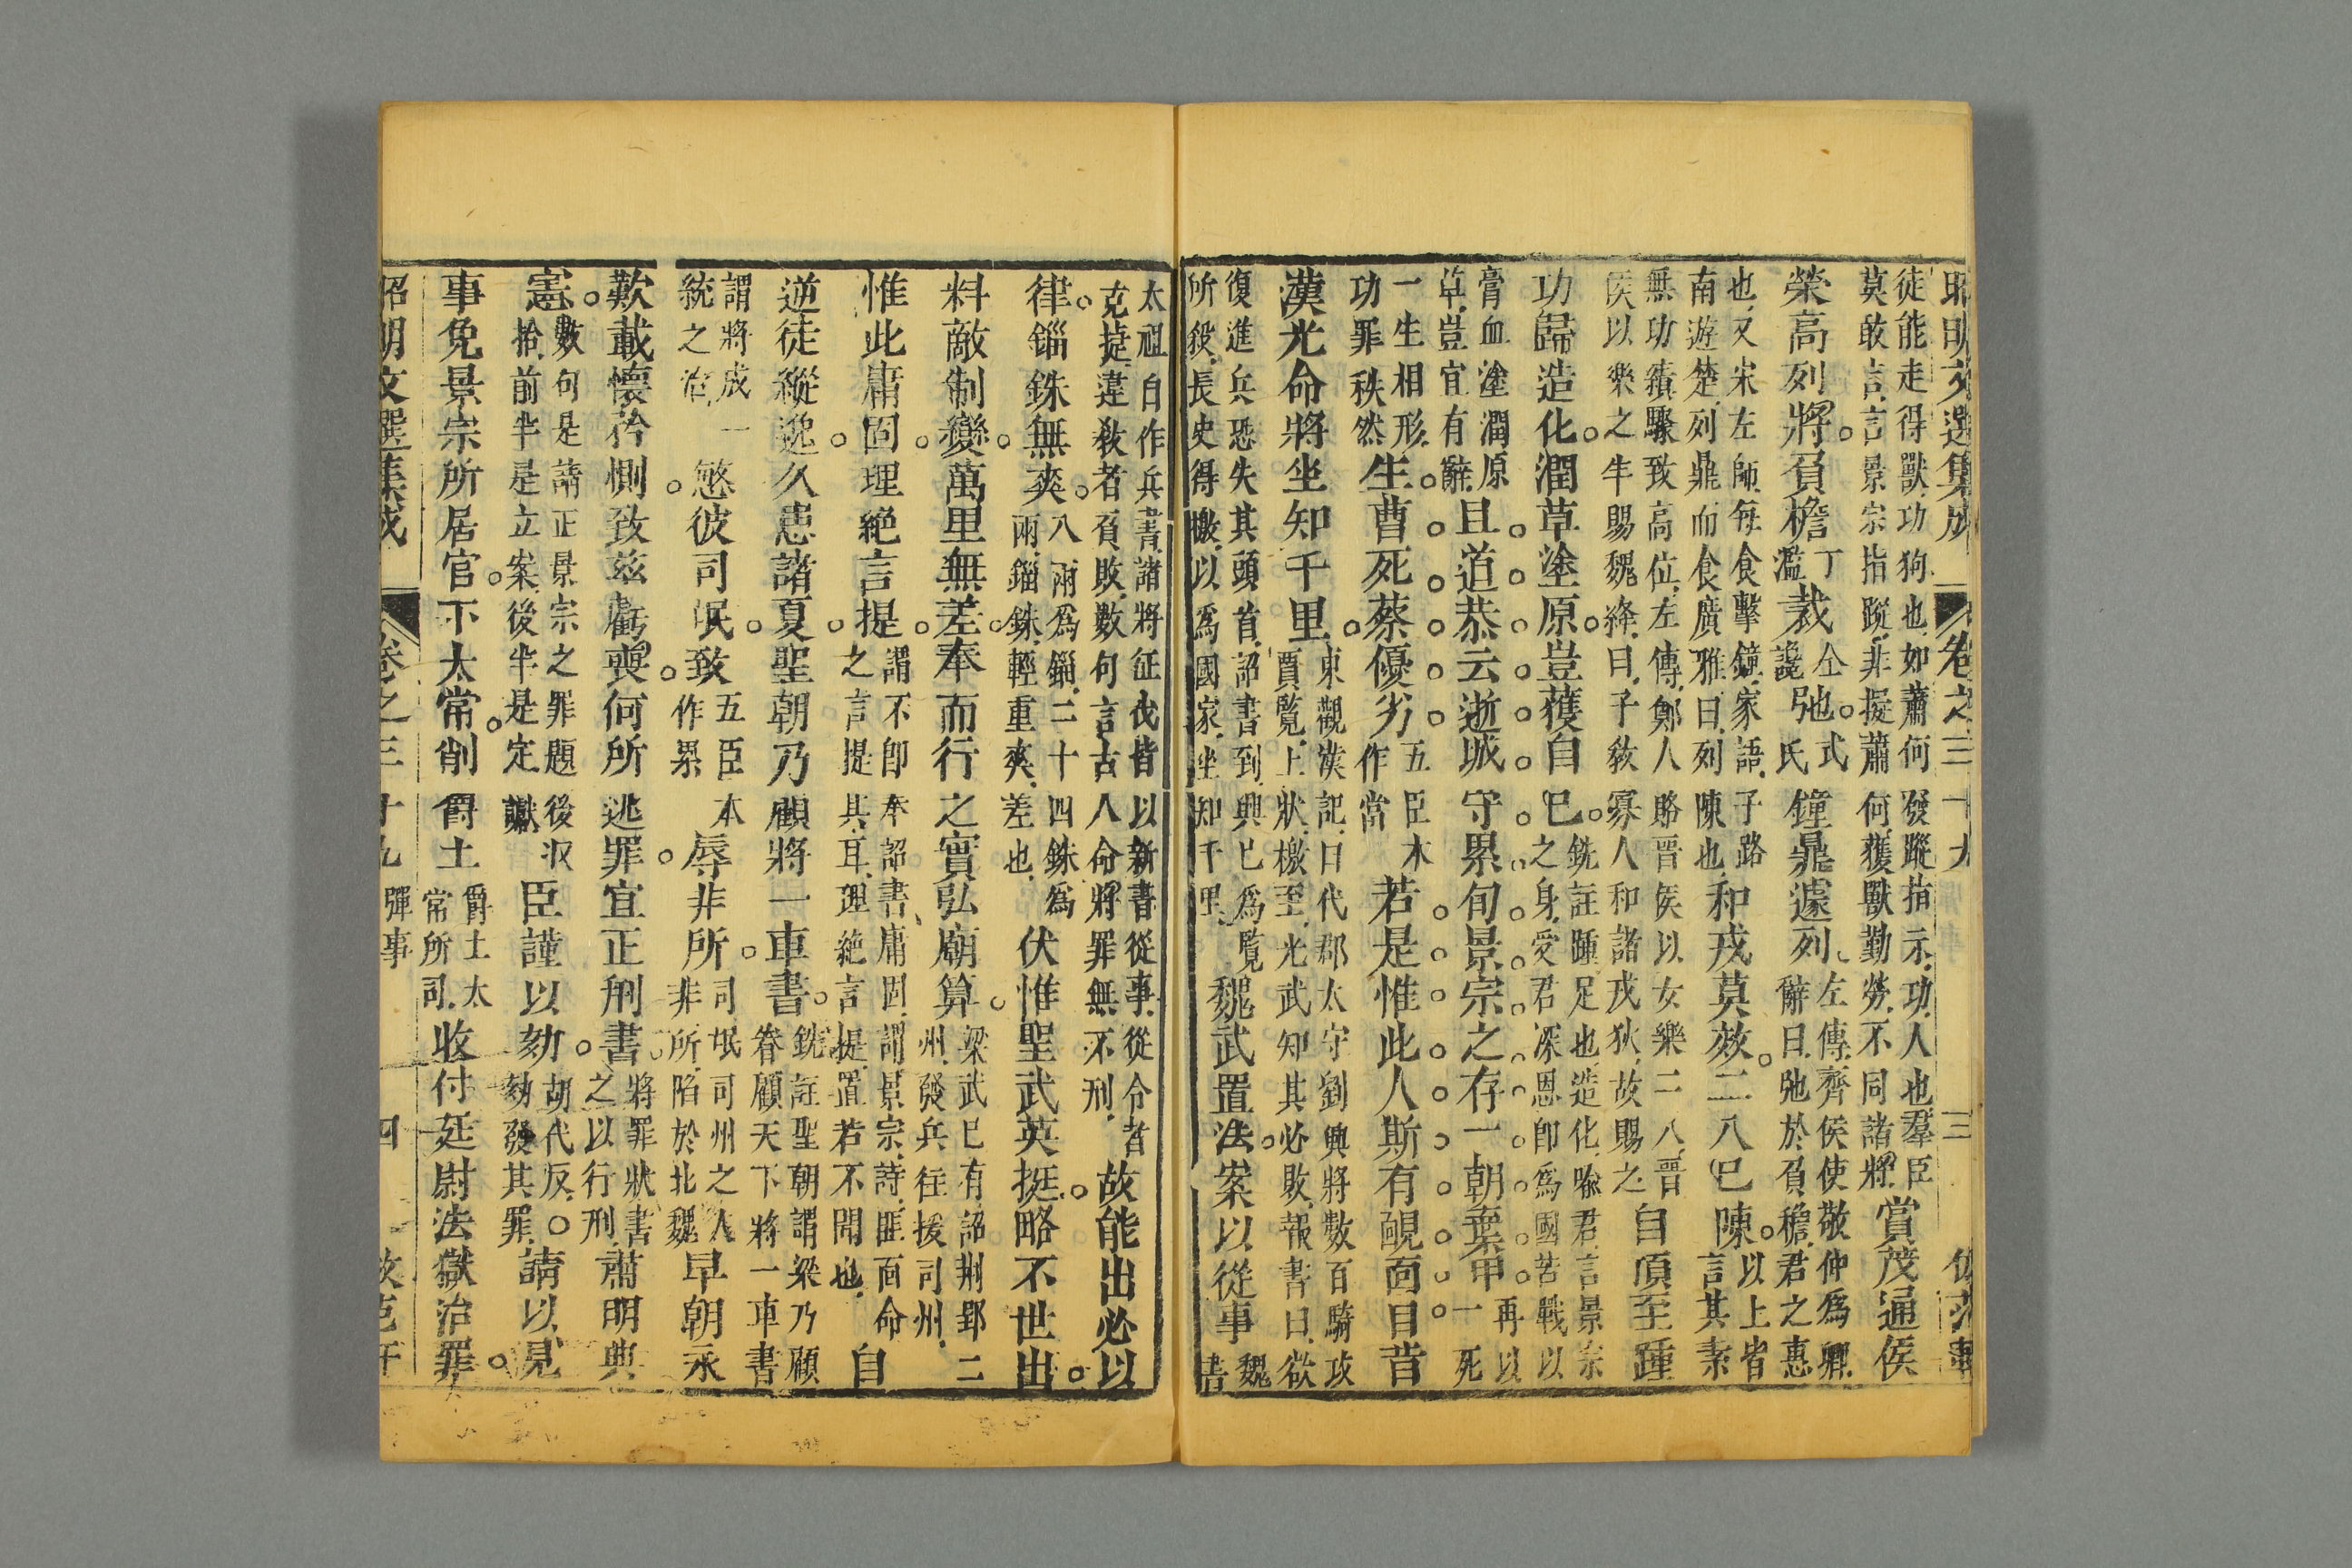 昭明文選集成 卷之三十九 三
徒能走得獸功狗也如蕭何發蹤指示功人也羣臣
莫敢言言景宗指蹤非擬蕭何獲獸勤勞不同諸將
賞茂通侯
榮高列將負檐丁濫裁仝讒弛式氏鐘鼎遽列左傳齊侯使敬仲爲卿
辭曰弛於負檐君之惠
也又宋左師每食擊鐘家語子路
南遊楚列鼎而食廣雅曰列陳也
和戎莫效二八巳陳以上皆
言其素
無功績驟致高位左傳鄭人賂晉侯以女樂二八晉
侯以樂之半賜魏絳曰子敎寡人和諸戎狄故賜之
自頂至踵
功歸造化潤草塗原豈獲自巳銑註踵足也造化喻君言景宗
之身受君深恩卽爲國苦戰以
膏血塗潤原
草豈宜有辭
且道恭云逝城守累旬景宗之存一朝棄甲再以
一死
一生相形
功罪秩然
生曹死蔡優劣五臣本
作當
若是惟此人斯有靦面目昔
漢光命將坐知千里東觀漢記曰代郡太守劉興將數百騎攻
賈覽上狀檄至光武知其必敗報書曰欲
復進兵恐失其頭首詔書到興巳爲覽
所殺長史得檄以爲國家坐知千里
魏武置法案以從事魏
書
太祖自作兵書諸將征伐皆以新書從事從令者
克捷違敎者負敗數句言古人命將罪無不刑
故能出必以
律錙銖無爽八兩爲錙二十四銖爲
兩錙銖輕重爽差也
伏惟聖武英挺略不世出
料敵制變萬里無差奉而行之實弘廟算梁武巳有詔荆郢二
州發兵往援司州
惟此庸固理絕言提謂不卽奉詔書庸固謂景宗詩匪面命
之言提其耳理絕言提置若不聞也
自
逆徒縱逸久患諸夏聖朝乃顧將一車書銑註聖朝謂梁乃顧
眷顧天下將一車書
謂將成一
統之治
愍彼司氓致五臣本
作累
辱非所司氓司州之人
非所陷於北魏
早朝永
歎載懷矜惻致茲虧喪何所逃罪宜正刑書將罪狀書
之以行刑
肅明典
憲數句是請正景宗之罪題後収
拾前半是立案後半是定讞
臣謹以劾胡代反○
劾發其罪
請以見
事免景宗所居官下太常削爵土爵土太
常所司
收付廷尉法獄治罪
昭明文選集成 卷之三十九 彈事 四